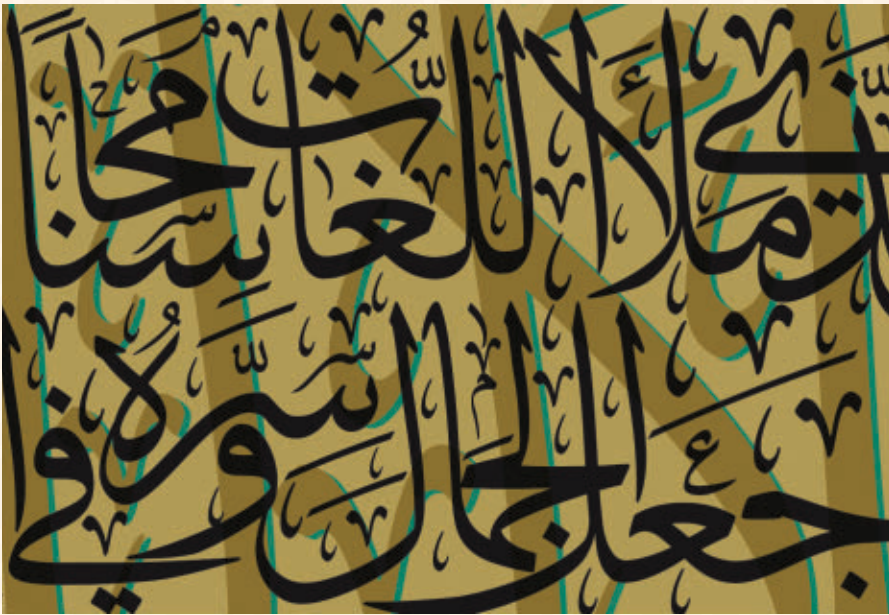 الَّذي مَلَأَ اللُّغاتِ مَحاسِناً
جَعَلَ الجَمالَ وَسِرَّهُ في